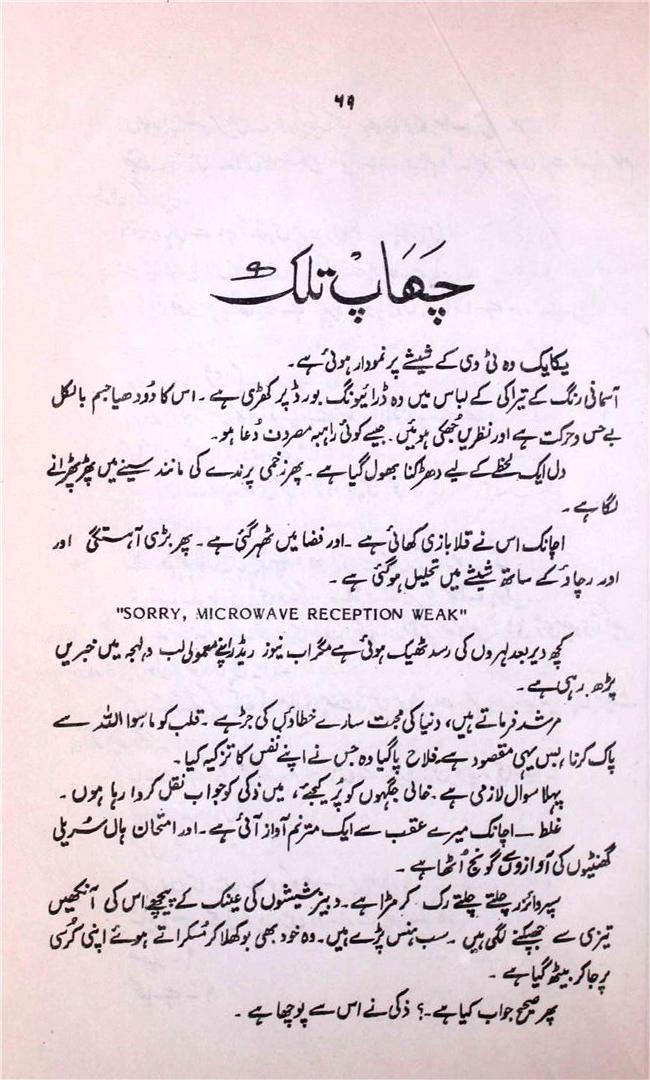 ۶۹
چھاپ تلک
یکایک وہ ٹی وی کے شیشے پر نمودار ہوئی ہے۔
آسمانی رنگ کے تیراکی کے لباس میں وہ ڈرائیونگ بورڈ پر کھڑی ہے۔ اس کا دُودھیا جسم بالکل
بے حس و حرکت ہے اور نظریں جُھکی ہوئیں۔ جیسے کوئی راہبہ مصروفِ دُعا ہو۔
دل ایک لحظے کے لیے دھڑکنا بھول گیا ہے۔ پھر زخمی پرندے کی مانند سینے میں پھڑپھڑانے
لگا ہے۔
اچانک اس نے قلابازی کھائی ہے۔ اور فضا میں ٹھہر گئی ہے۔ پھر بڑی آہستگی اور
اور رچاؤ کے ساتھ شیشے میں تحلیل ہوگئی ہے۔
"SORRY, MICROWAVE RECEPTION WEAK"
کچھ دیر بعد لہروں کی رسد ٹھیک ہوئی ہے مگر اب نیوز ریڈر اپنے معمولی لب و لہجہ میں خبریں
پڑھ رہی ہے۔
مرشد فرماتے ہیں، دنیا کی محبت سارے خطاؤں کی جڑ ہے۔ قلب کو ماسوا اللہ سے
پاک کرنا، بس یہی مقصود ہے۔ فلاح پاگیا وہ جس نے اپنے نفس کا تزکیہ کیا۔
پہلا سوال لازمی ہے۔ خالی جگہوں کو پُر کیجئے، میں ذکی کو جواب نقل کروا رہا ہوں۔
غلط — اچانک میرے عقب سے ایک مترنم آواز آئی ہے۔ اور امتحان ہال سُریلی
گھنٹیوں کی آوازوں سے گونج اُٹھا ہے۔
سپروائزر چلتے چلتے رک کر مڑا ہے۔ دبیز شیشوں کی عینک کے پیچھے اس کی آنکھیں
تیزی سے جھپکنے لگی ہیں۔ سب ہنس پڑے ہیں۔ وہ خود بھی بوکھلا کر مُسکراتے ہوئے اپنی کرسی
پر جا کر بیٹھ گیا ہے۔
پھر صحیح جواب کیا ہے۔؟ ذکی نے اس سے پوچھا ہے۔